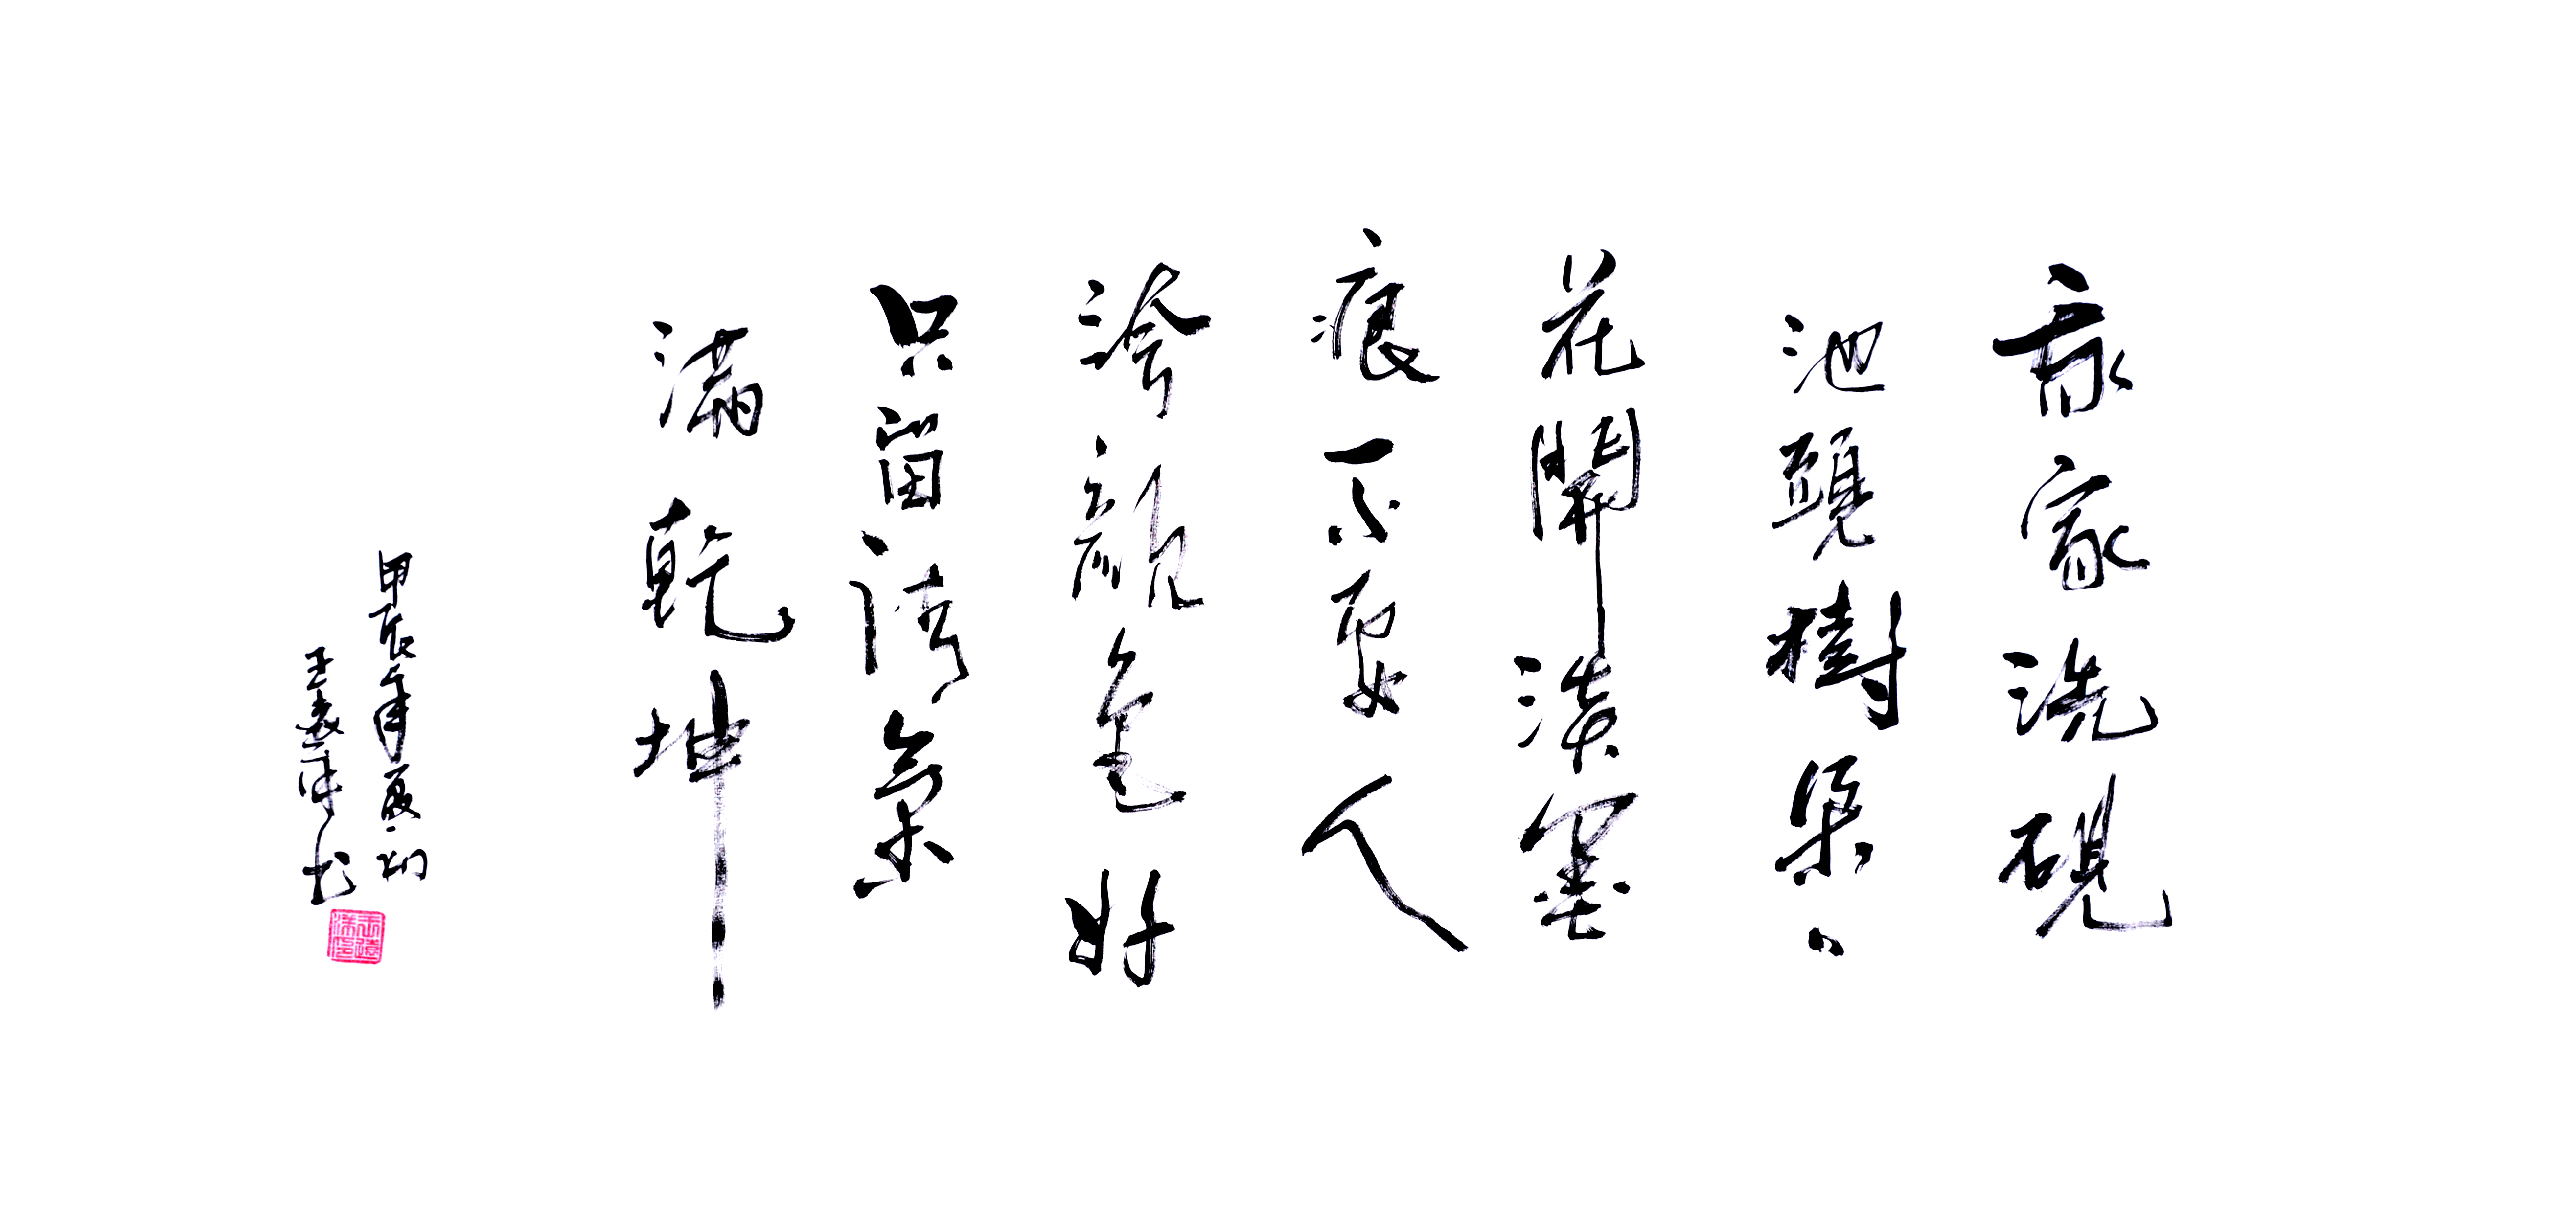 我家洗硯
池頭樹朵〻
花開淡墨
痕不要人
誇顏色好
只留清氣
滿乾坤
甲辰年夏初
王遠洋书